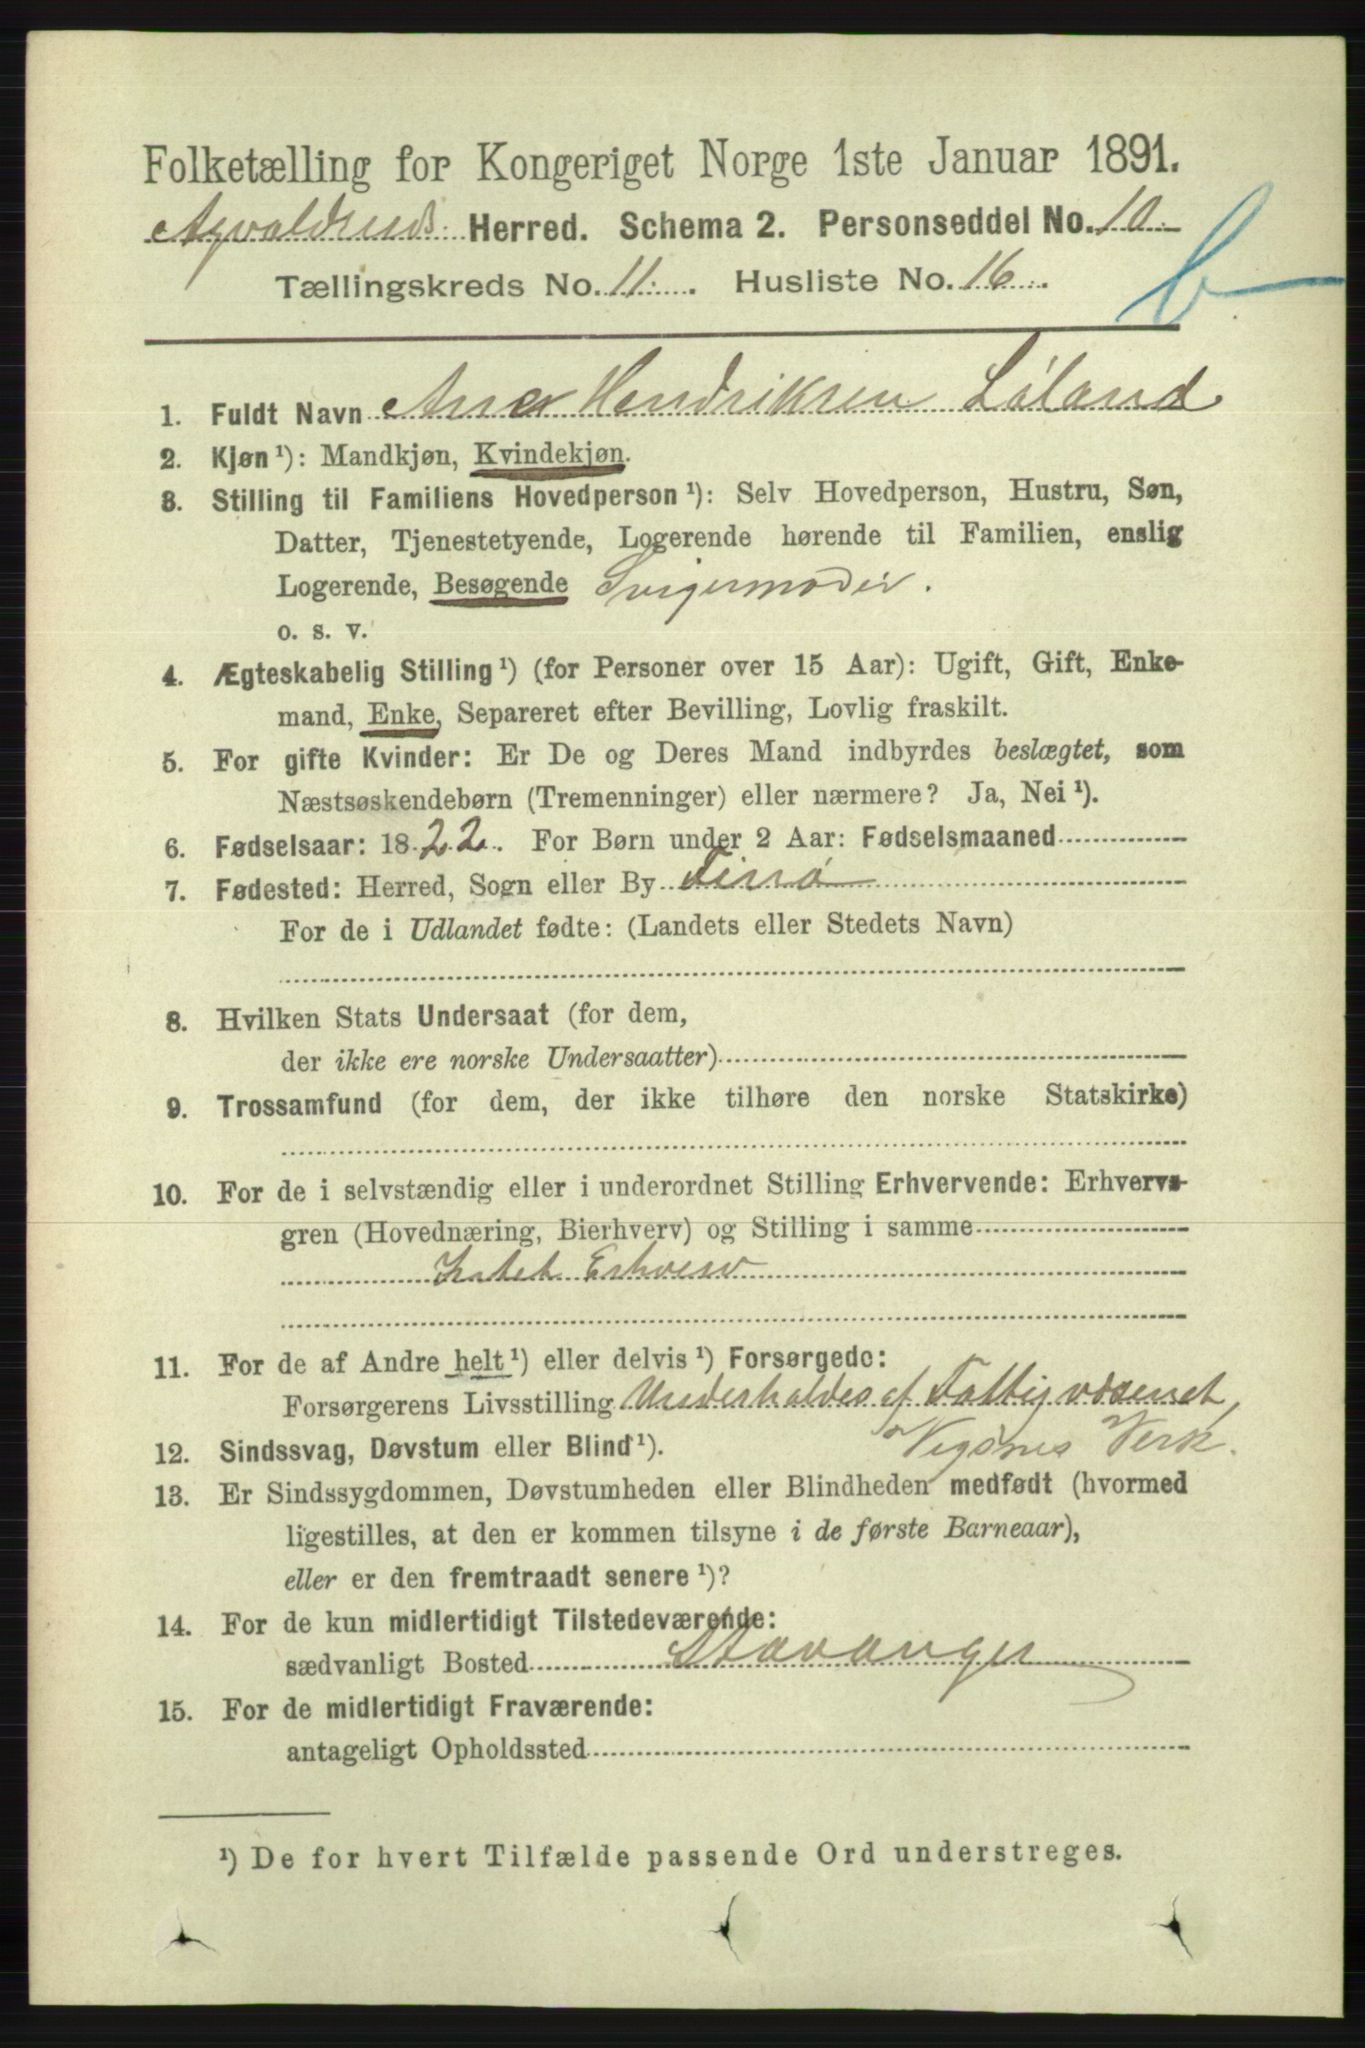 Folketælling for Kongeriget Norge 1ste Januar 1891.
Herred. Schema 2. Personseddel No. 10.
Tællingskreds No. 11. Husliste No. 16.
b
1. Fuldt Navn Ana Hendriksen Løland
2. Kjøn ¹): Mandkjøn, Kvindekjøn.
3. Stilling til Familiens Hovedperson ¹): Selv Hovedperson, Hustru, Søn,
Datter, Tjenestetyende, Logerende hørende til Familien, enslig
Logerende, Besøgende Svigermoder.
o. s. v.
4. Ægteskabelig Stilling ¹) (for Personer over 15 Aar): Ugift, Gift, Enke-
mand, Enke, Separeret efter Bevilling, Lovlig fraskilt.
5. For gifte Kvinder: Er De og Deres Mand indbyrdes beslægtet, som
Næstsøskendebørn (Tremenninger) eller nærmere? Ja, Nei ¹).
6. Fødselsaar: 1822. For Børn under 2 Aar: Fødselsmaaned
7. Fødested: Herred, Sogn eller By Finø
For de i Udlandet fødte: (Landets eller Stedets Navn)
8. Hvilken Stats Undersaat (for dem,
der ikke ere norske Undersaatter)
9. Trossamfund (for dem, der ikke tilhøre den norske Statskirke)
10. For de i selvstændig eller i underordnet Stilling Erhvervende: Erhvervs-
gren (Hovednæring, Bierhverv) og Stilling i samme
Intet Erhverv
11. For de af Andre helt ¹) eller delvis ¹) Forsørgede:
Forsørgerens Livsstilling Underholdes af Fattigvæsenet,
Vigsnes Verk.
12. Sindssvag, Døvstum eller Blind ¹).
13. Er Sindssygdommen, Døvstumheden eller Blindheden medfødt (hvormed
ligestilles, at den er kommen tilsyne i de første Barneaar),
eller er den fremtraadt senere ¹)?
14. For de kun midlertidigt Tilstedeværende:
sædvanligt Bosted Stavanger
15. For de midlertidigt Fraværende:
antageligt Opholdssted
¹) De for hvert Tilfælde passende Ord understreges.